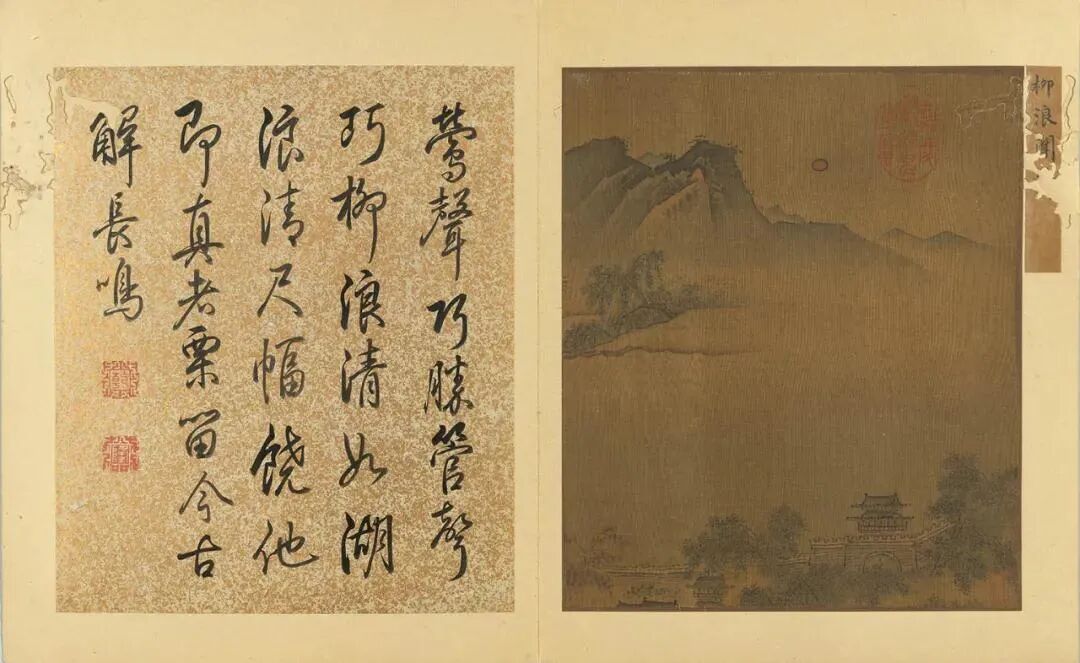 柳浪聞
鶯聲巧勝管聲
巧柳浪清如湖
浪清尺幅饒他
即真者栗留今古
解長鳴